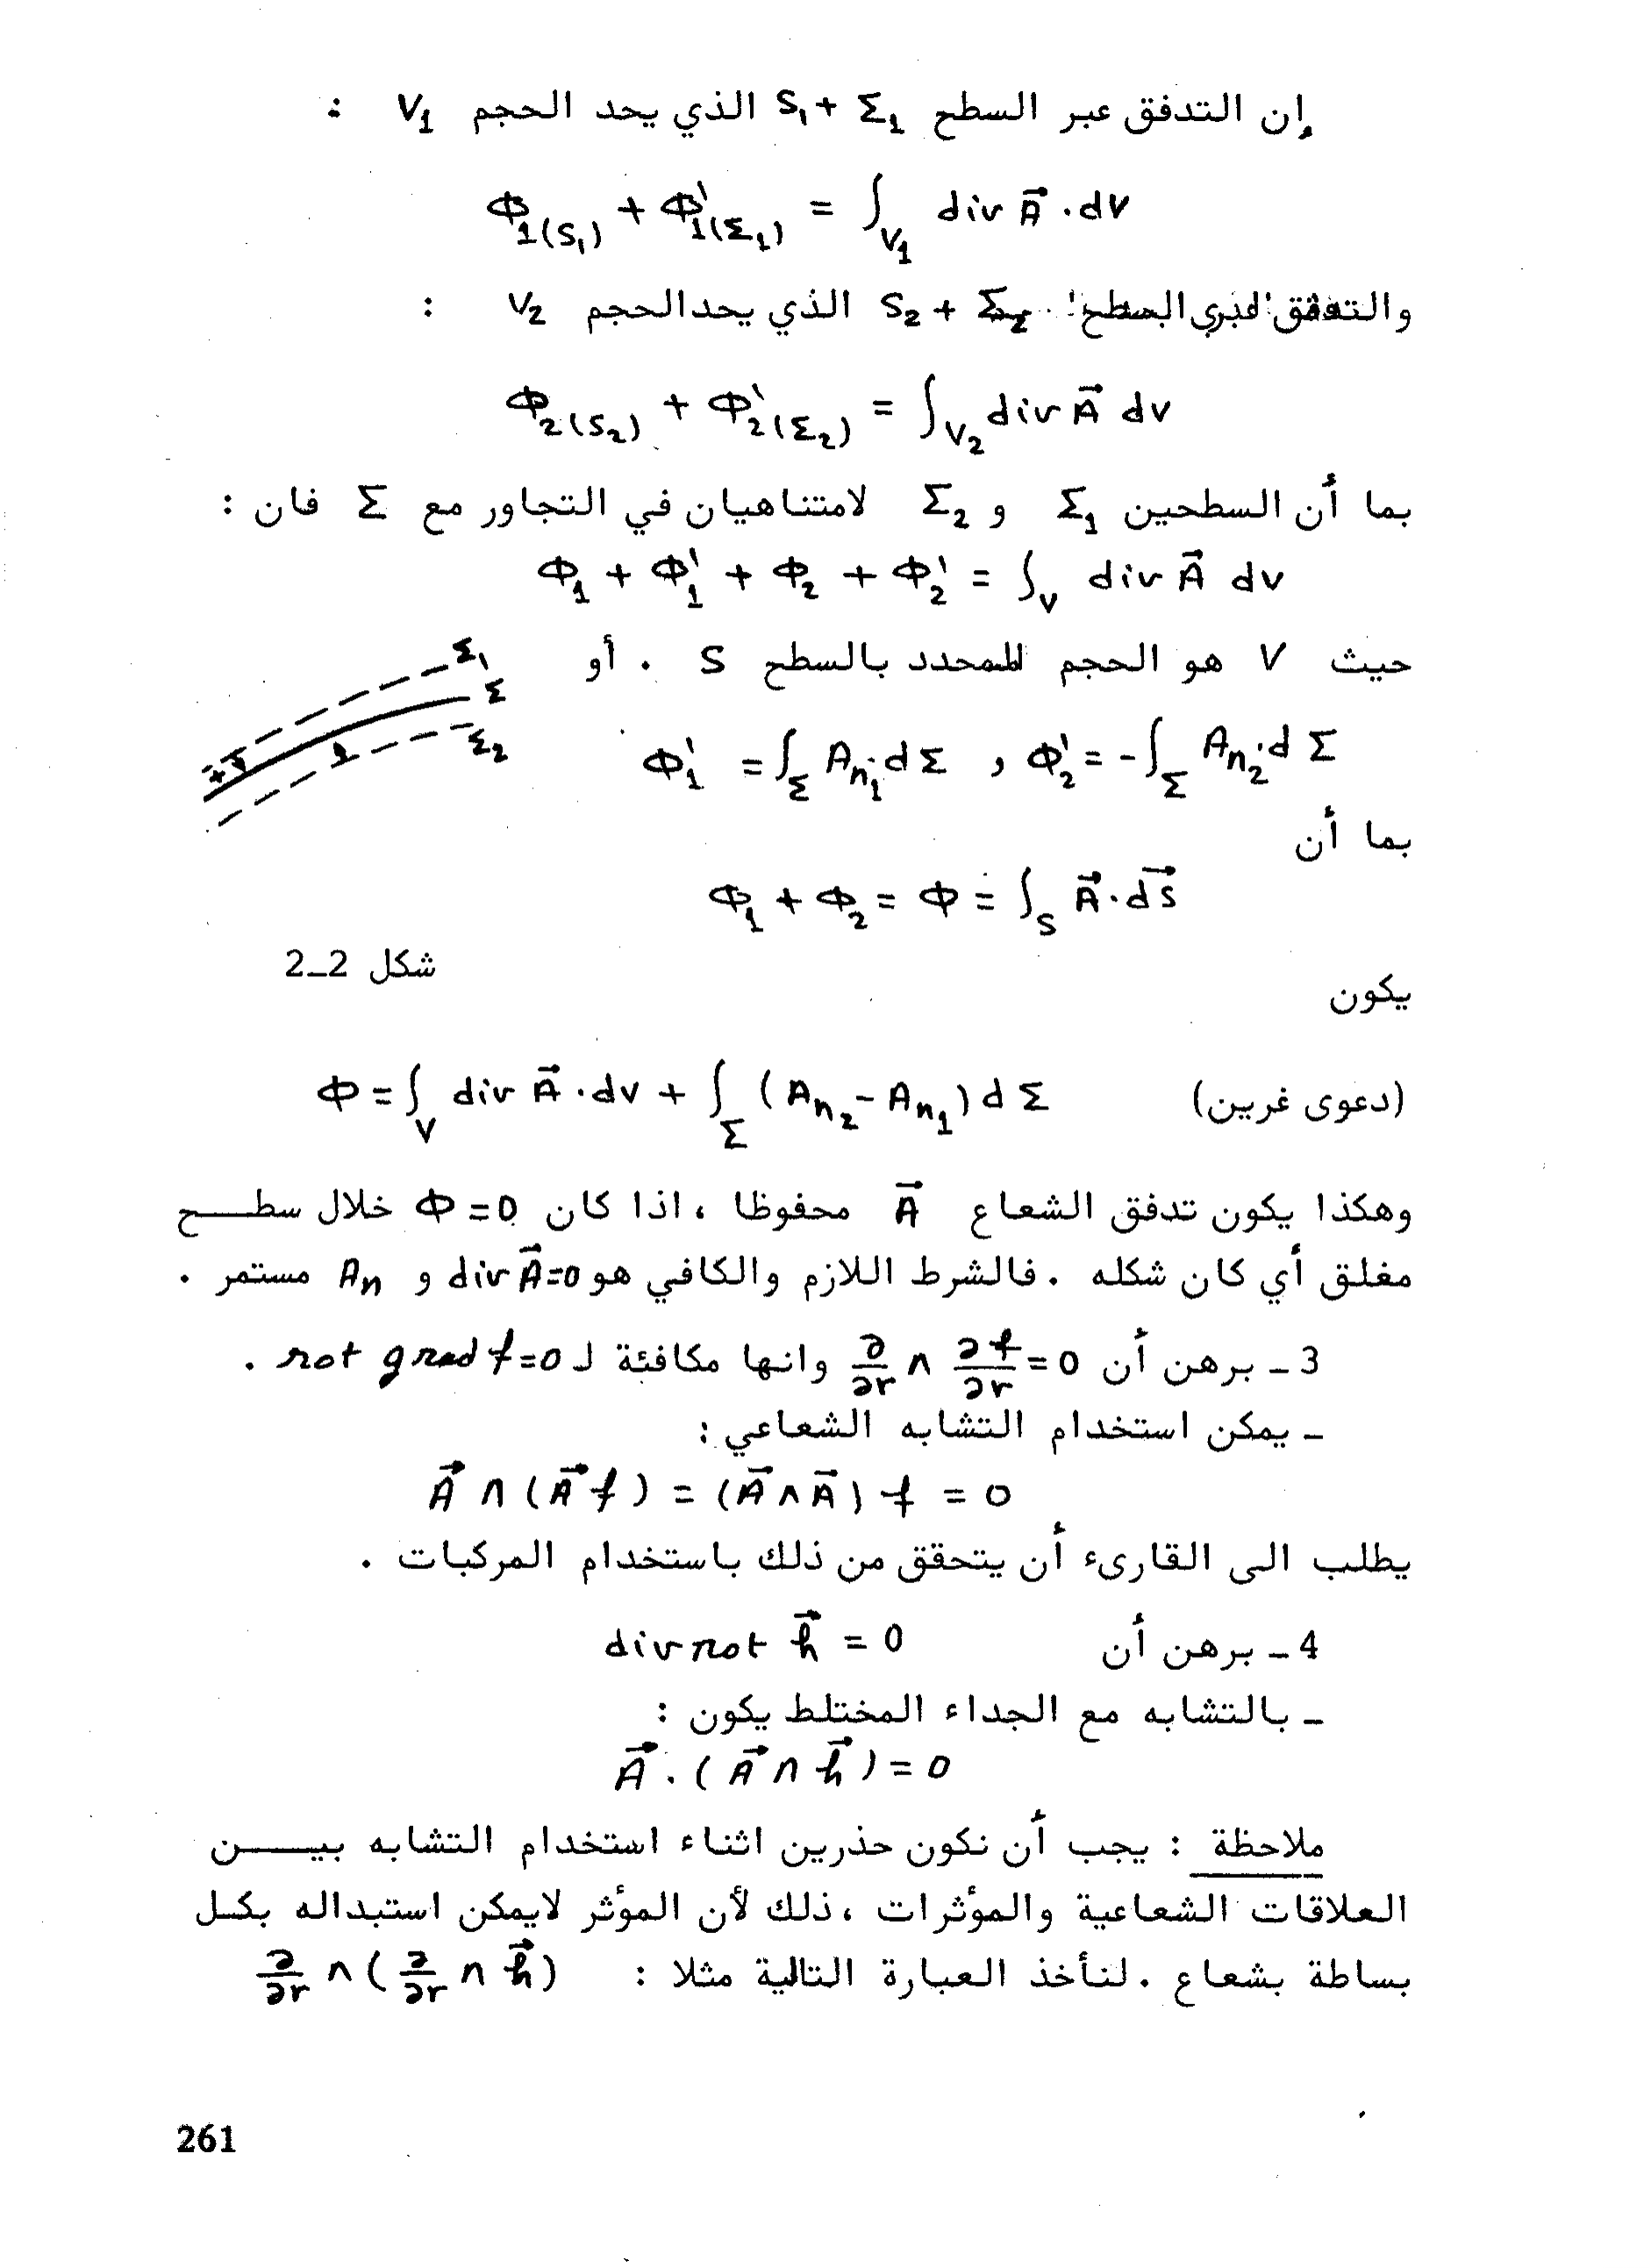 إن التدفق عبر السطح S₁ + Σ₁ الذي يحد الحجم V₁ :
Φ₁(S₁) + Φ'₁(Σ₁) = ∫_V₁ div A⃗ . dV
والتدفق عبر السطح S₂ + Σ₂ الذي يحد الحجم V₂ :
Φ₂(S₂) + Φ'₂(Σ₂) = ∫_V₂ div A⃗ dv
بما أن السطحين Σ₁ و Σ₂ لامتناهيان في التجاور مع Σ فان :
Φ₁ + Φ'₁ + Φ₂ + Φ'₂ = ∫_V div A⃗ dv
حيث V هو الحجم المحدد بالسطح S . أو
Σ₁
Σ
Σ₂
Φ'₁ = ∫_Σ Aₙ₁.dΣ , Φ'₂ = -∫_Σ Aₙ₂.dΣ
بما أن
Φ₁ + Φ₂ = Φ = ∫_S A⃗.dS⃗
شكل 2_2
يكون
Φ = ∫_V div A⃗ .dv + ∫_Σ (Aₙ₂ - Aₙ₁) dΣ (دعوى غرين)
وهكذا يكون تدفق الشعاع A⃗ محفوظا ، اذا كان Φ = 0 خلال سطح
مغلق أي كان شكله . فالشرط اللازم والكافي هو div A⃗=0 و Aₙ مستمر .
3 _ برهن أن ∂/∂r ∧ ∂f/∂r = 0 وانها مكافئة لـ rot grad f=0 .
_ يمكن استخدام التشابه الشعاعي :
A⃗ ∧ (A⃗ f) = (A⃗ ∧ A⃗) f = 0
يطلب الى القارىء أن يتحقق من ذلك باستخدام المركبات .
4 _ برهن أن div rot h⃗ = 0
_ بالتشابه مع الجداء المختلط يكون :
A⃗ . ( A⃗ ∧ h⃗ ) = 0
ملاحظة : يجب أن نكون حذرين اثناء استخدام التشابه بين
العلاقات الشعاعية والمؤثرات ، ذلك لأن المؤثر لايمكن استبداله بكل
بساطة بشعاع . لنأخذ العبارة التالية مثلا : ∂/∂r ∧ ( ∂/∂r ∧ h⃗ )
261